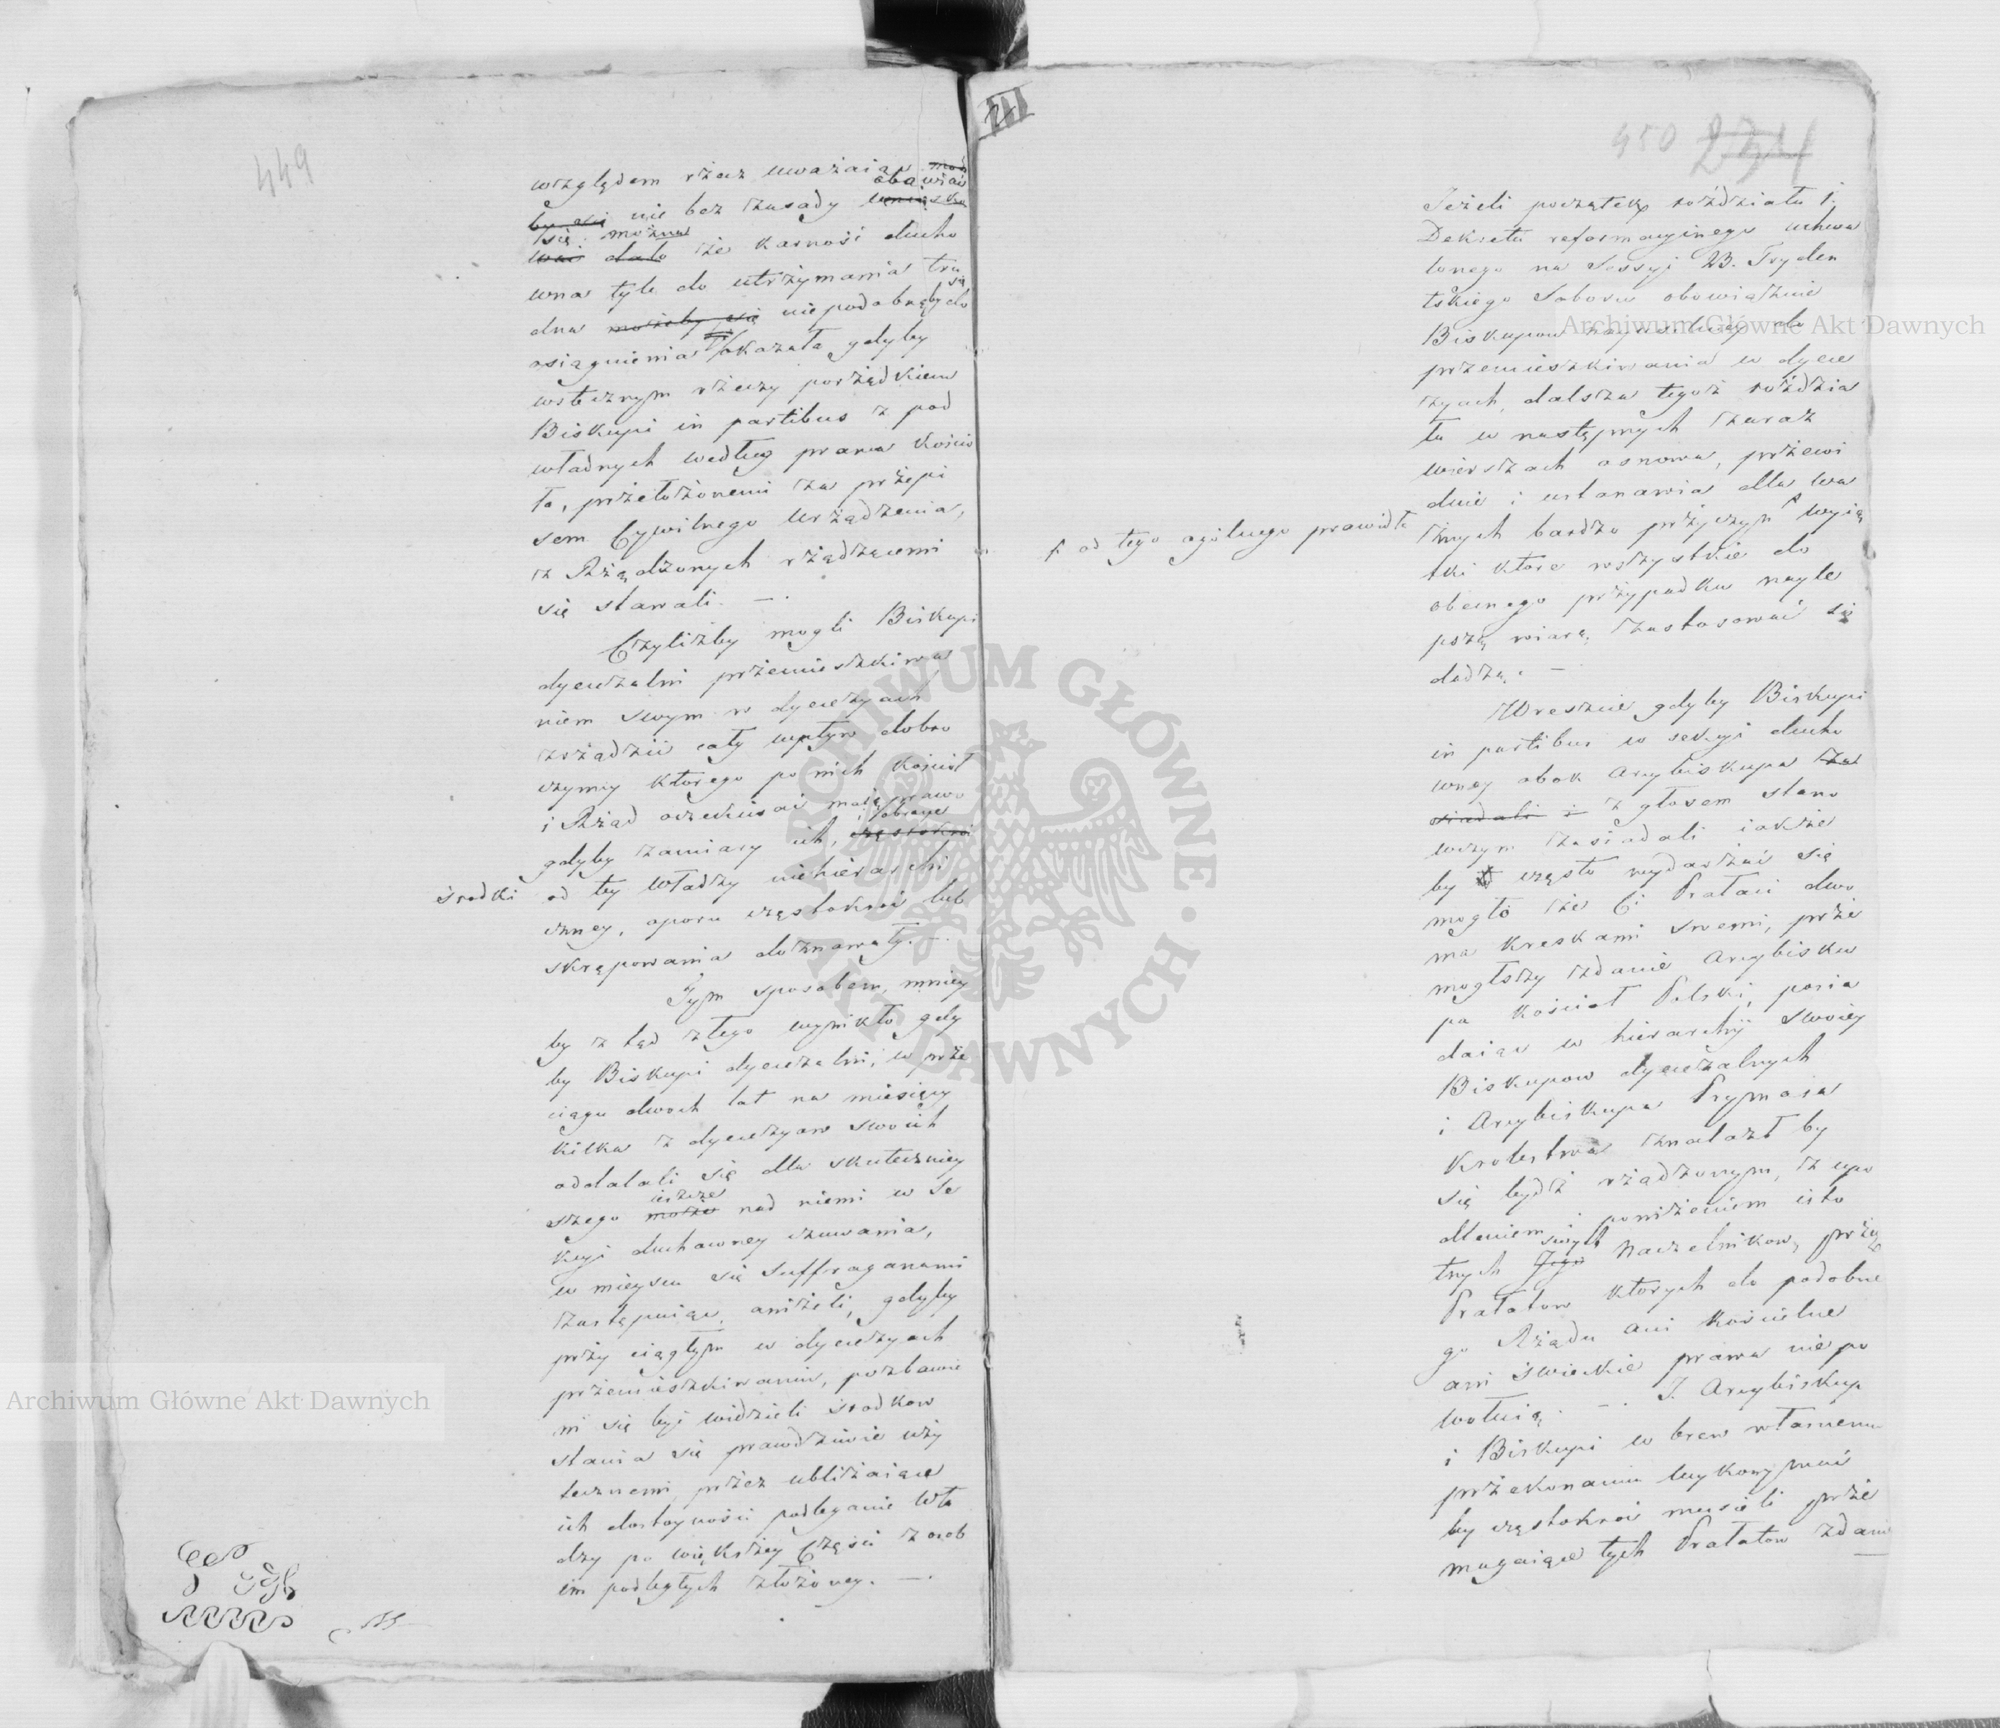 449
względem rzecz uważaiąc moż
obawiać
by się nie bez zasady wnios ko
się można
wać dało że karność ducho
wna tyle do utrzymania tru
dna możeby się niepodobnąby do
się
osiągnienia okazała gdyby
wstecznym rzeczy porządkiem
Biskupi in partibus z pod
władnych według prawa Kościo
ła, przełożonemi za przepi
sem Cywilnego urządzenia,
z Rządzonych rządzącemi
się stawali. —.
Czyliżby mogli Biskupi
dyecezalni przemieszkiwa
niem swym w dyecezyach
zrządzić cały wpływ dobro
czynny ktorego po nich Kościoł
i Rząd oczekiwać maią prawo
i obrane
gdyby zamiary ich, częstokroć
środki od tey władzy niehierarchi
czney, oporu częstokroć lub
skrępowania doznawały. —.
Tym sposobem, mniey
by z tąd złego wynikło gdy
by Biskupi dyecezalni, w prze
ciągu dwoch lat na miesięcy
kilka z dyecezyow swoich
oddalali się dla skuteczniey
ieszcze
szego może nad niemi w Se
kcyi duchowney czuwania,
w mieyscu się Suffraganami
zastępuiąc, aniżeli, gdyby
przy ciągłym w dyecezyach
przemieszkiwaniu, pozbawie
ni się być widzieli środkow
stania się prawdziwie uży
tecznemi, przez ubliżaiące
ich dostoyności podleganie wła
dzy po większey części z osob
im podległych złożoney. —.
Archiwum Główne Akt Dawnych
450 234
Jeżeli początek rozdziału 1.
Dekretu reformacyinego uchwa
lonego na Sessyi 23. Tryden
tskiego Soboru obowiązuie
Biskupow naysilniey do
przemieszkiwania w dyece
zyach, dalsza tegoż rozdzia
łu w następnych zaraz
wierszach osnowa, przewi
duie i ustanawia dla wa
żnych bardzo przyczyn wyią
od tego ogólnego prawidła
tki ktore wszystkie do
obecnego przypadku nayle
pszą wiarą zastosować się
dadzą. —
Wreszcie gdyby Biskupi
in partibus w sekcyi ducho
wney obok Arcybiskupa za
siadali i z głosem stano
wczym zasiadali iakże
by często wydarzać się
mogło że Ci Prałaci dwo
ma kreskami swemi, prze
mogłszy zdanie Arcybisku
pa Kościoł Polski, posia
daiąc w hierarchij swoiey
Biskupow dyecezalnych
i Arcybiskupa Prymasa
Krolestwa znalazł by
się bydź rządzonym, z upo
dleniem i poniżeniem isto
swych
tnych Jego Naczelnikow, prze
Prałatow ktorych do podobne
go Rządu ani Kościelne
ani świeckie prawa nie po
wołuią. —. J. Arcybiskup
i Biskupi w brew własnemu
przekonaniu wykonywać
by częstokroć musieli prze
magaiące tych Prałatow zdanie
Archiwum Główne Akt Dawnych
ARCHIWUM GŁÓWNE · AKT DAWNYCH ·